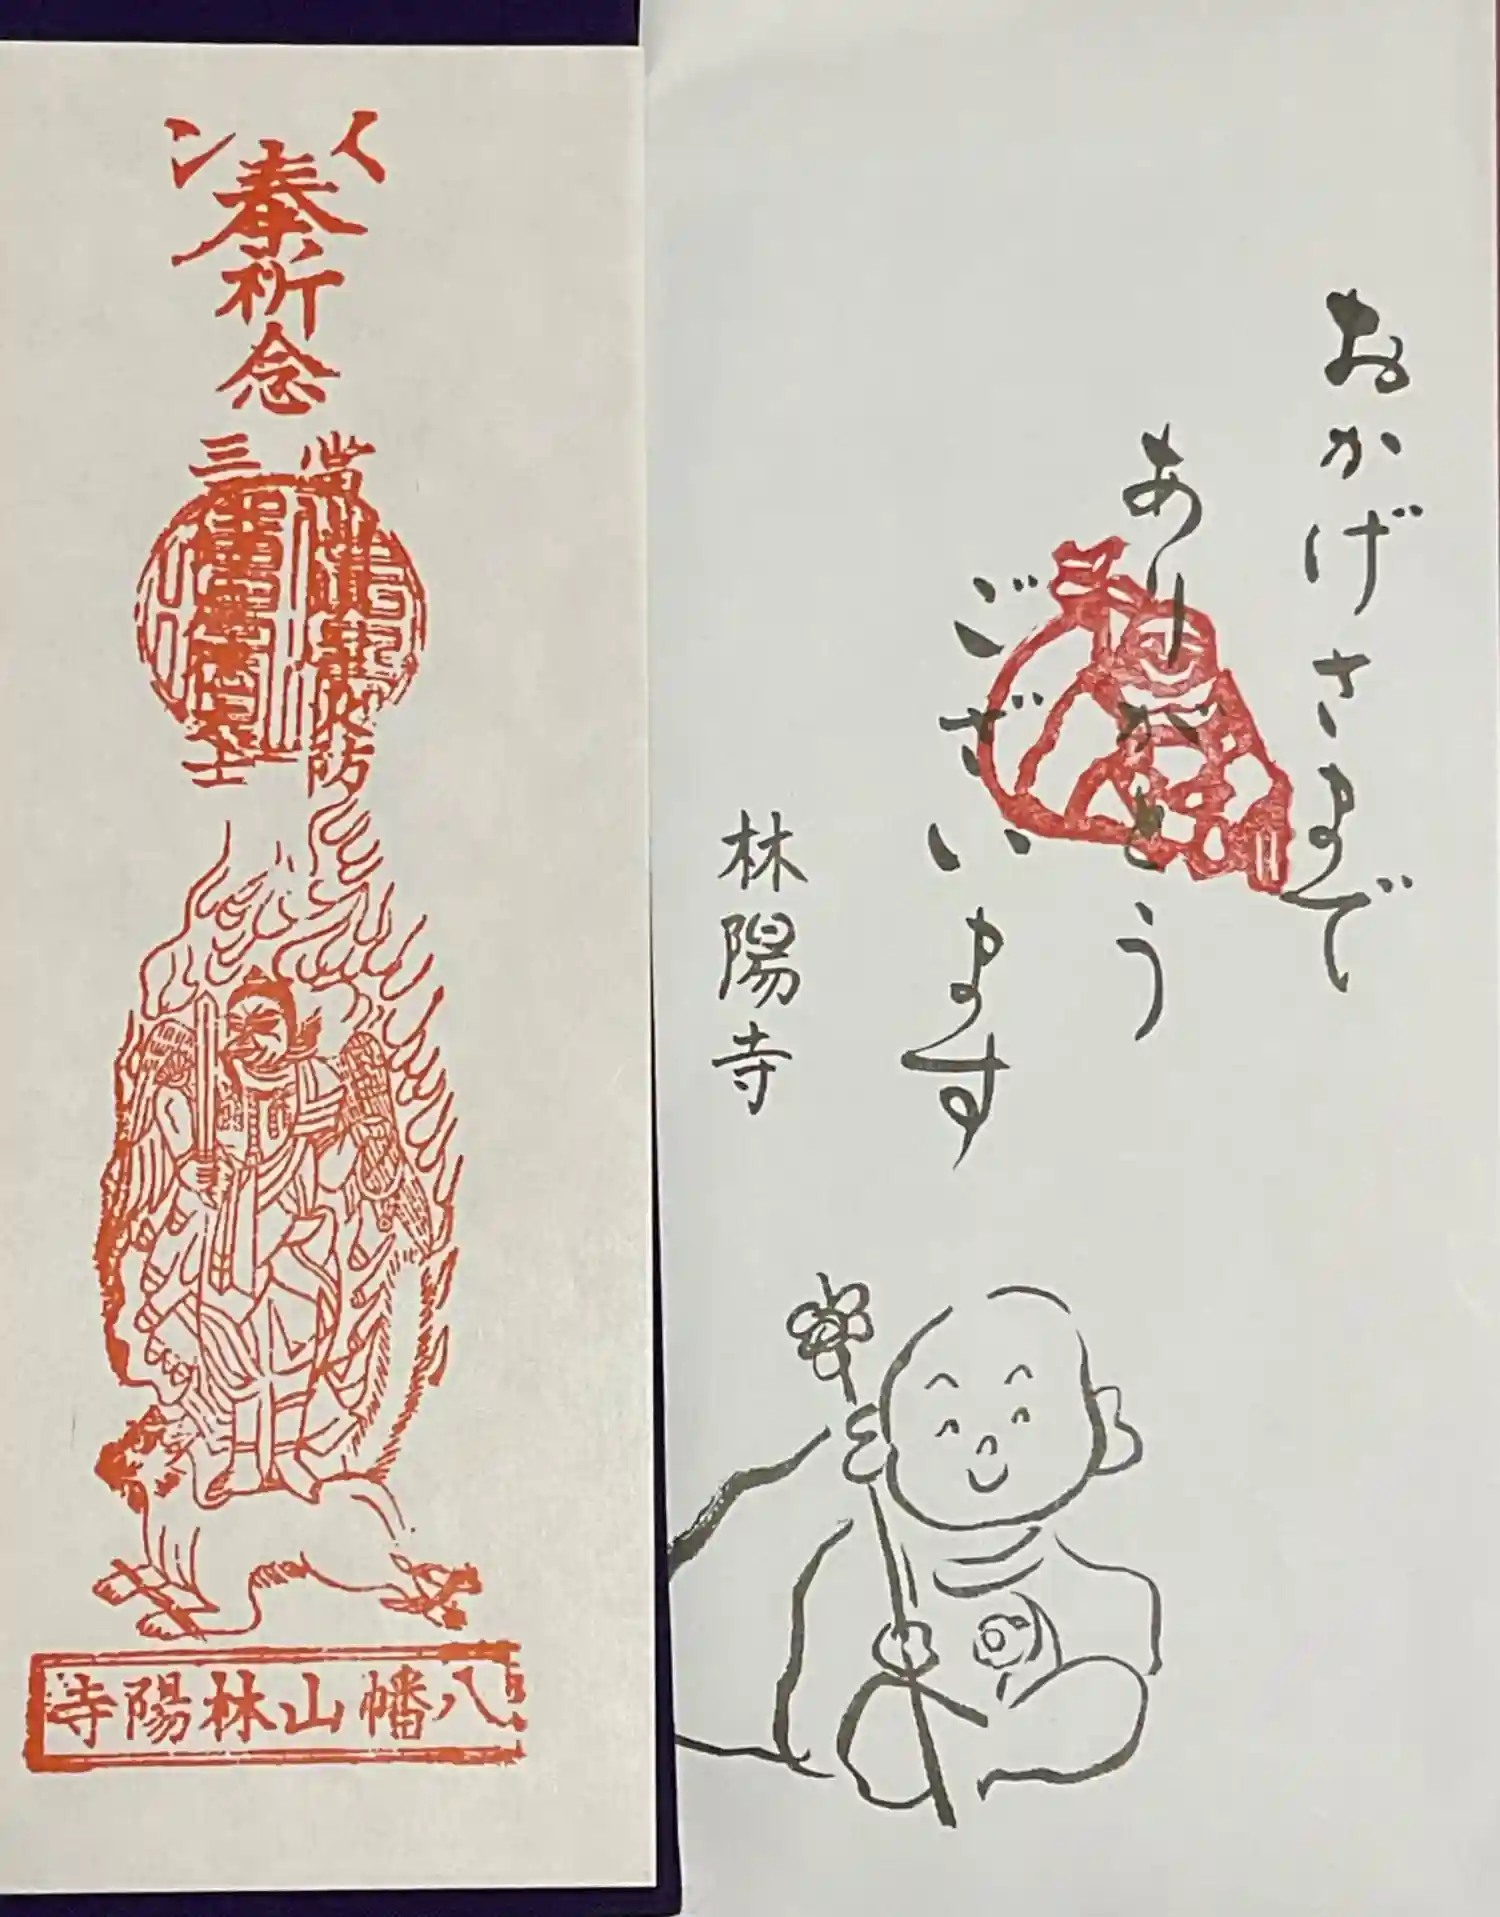 奉祈念
當
火防
三
士
八幡山林陽寺
おかげさまで
ありがとう
ございます
林陽寺